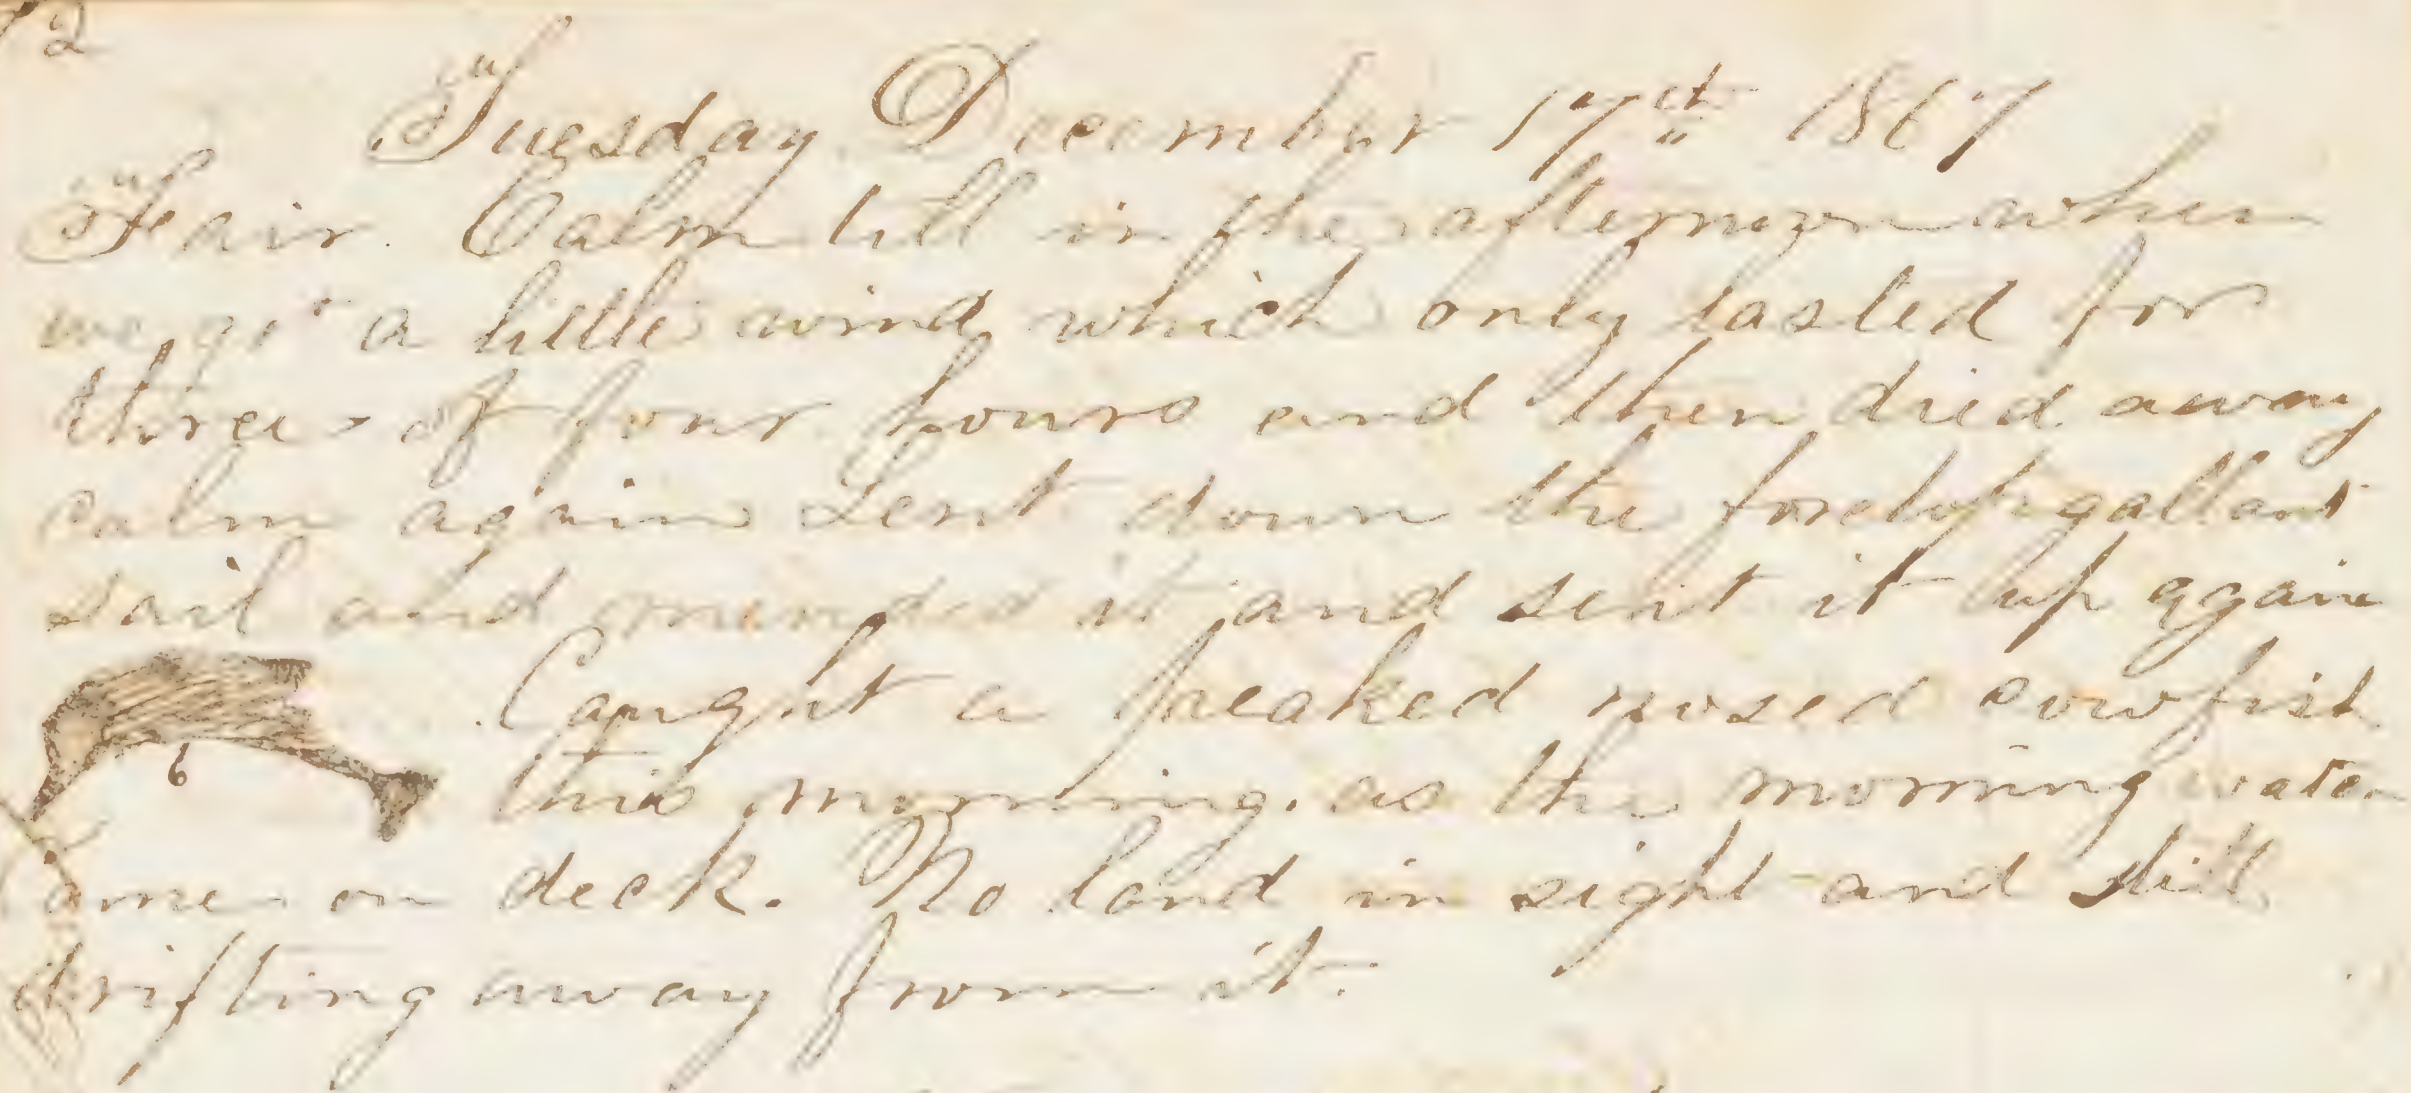 72
Tuesday December 17th 1867
Fair. Calm till in the afternoon when
we got a little wind which only lasted for
three of four hours and then died away
calm again Sent down the foretopgallant
sail and mended it and sent it up again
Caught a peaked nosed cowfish
6 this morning. as the morning watch
came on deck. No land in sight and still
drifting away from it.